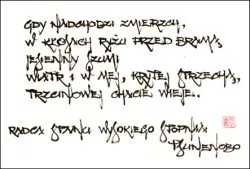 GDY NADCHODZI ZMIERZCH,
W KŁOSACH RYŻU PRZED BRAMĄ,
JESIENNY SZUMI
WIATR I W MEJ, KRYTEJ STRZECHĄ,
TRZCINOWEJ CHACIE WIEJE..
RADCA STANU WYSOKIEGO STOPNIA
TSUNENOBO